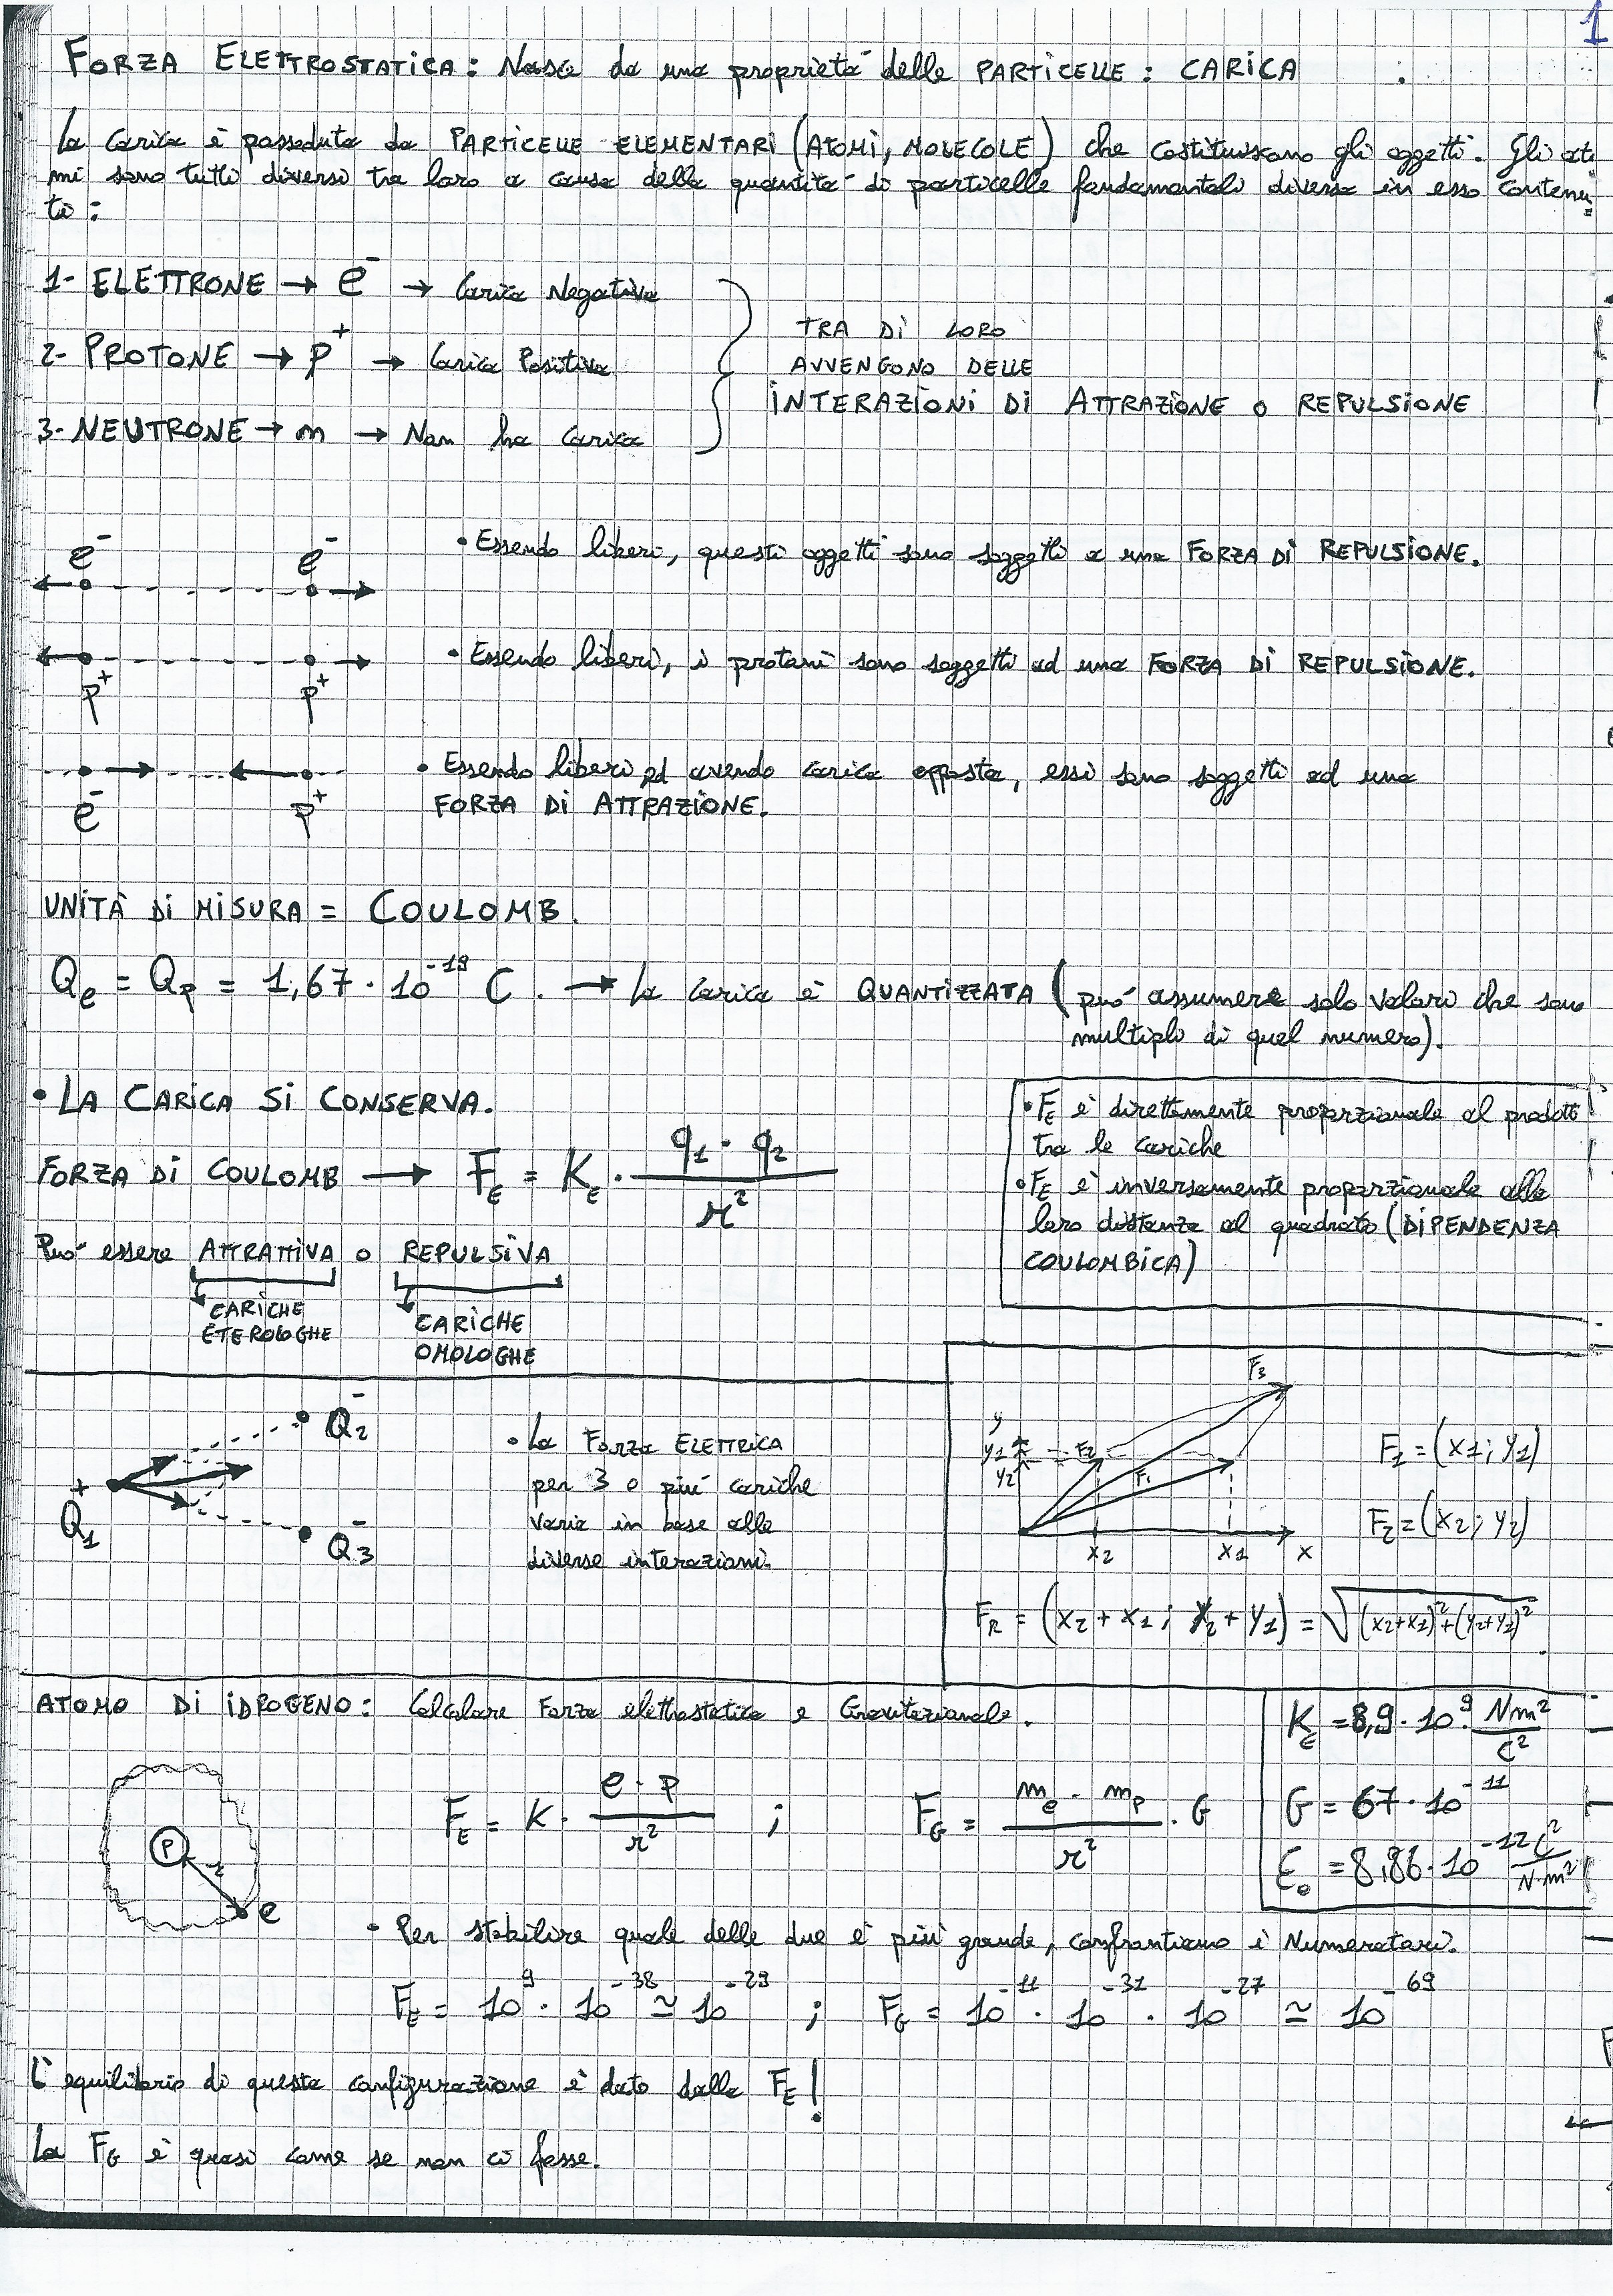 1
FORZA ELETTROSTATICA: Nasce da una proprietà delle PARTICELLE: CARICA
La carica è posseduta da PARTICELLE ELEMENTARI (ATOMI, MOLECOLE) che costituiscono gli oggetti. Gli ato
mi sono tutti diversi tra loro a causa della quantità di particelle fondamentali diversa in esso contenu
to:
1- ELETTRONE → e⁻ → Carica Negativa
2- PROTONE → p⁺ → Carica Positiva
3- NEUTRONE → n → Non ha carica
TRA DI LORO
AVVENGONO DELLE
INTERAZIONI DI ATTRAZIONE O REPULSIONE
e⁻ e⁻
• Essendo liberi, questi oggetti sono soggetti a una FORZA DI REPULSIONE.
p⁺ p⁺
• Essendo liberi, i protoni sono soggetti ad una FORZA DI REPULSIONE.
e⁻ p⁺
• Essendo liberi ed avendo carica opposta, essi sono soggetti ad una
FORZA DI ATTRAZIONE.
UNITÀ DI MISURA = COULOMB.
Qe = Qp = 1,67 · 10⁻¹⁹ C. → La carica è QUANTIZZATA (può assumere solo valori che sono
multipli di quel numero).
• LA CARICA SI CONSERVA.
FORZA DI COULOMB → F_E = K_E · q₁ · q₂ / r²
Può essere ATTRATTIVA o REPULSIVA
CARICHE
ETEROLOGHE
CARICHE
OMOLOGHE
• F_E è direttamente proporzionale al prodotto
tra le cariche
• F_E è inversamente proporzionale alla
loro distanza al quadrato (DIPENDENZA
COULOMBICA)
Q₂⁻
Q₁⁺
Q₃⁻
• La Forza ELETTRICA
per 3 o più cariche
varia in base alle
diverse interazioni.
F₃
y
y₁ F₂
y₂ F₁
x₂ x₁ x
F₁ = (x₁; y₁)
F₂ = (x₂; y₂)
F_R = (x₂ + x₁; y₂ + y₁) = √(x₂+x₁)²+(y₂+y₁)²
ATOMO DI IDROGENO: Calcolare Forza elettrostatica e Gravitazionale.
P r e
F_E = K · e · p / r² ; F_G = m_e · m_p / r² · G
K_E = 8,9 · 10⁹ Nm²/C²
G = 67 · 10⁻¹¹
ε₀ = 8,86 · 10⁻¹² C²/N·m²
• Per stabilire quale delle due è più grande, confrontiamo i Numeratori.
F_E = 10⁹ · 10⁻³⁸ ≃ 10⁻²⁹ ; F_G = 10⁻¹¹ · 10⁻³¹ · 10⁻²⁷ ≃ 10⁻⁶⁹
L'equilibrio di questa configurazione è dato dalla F_E!
La F_G è quasi come se non ci fosse.